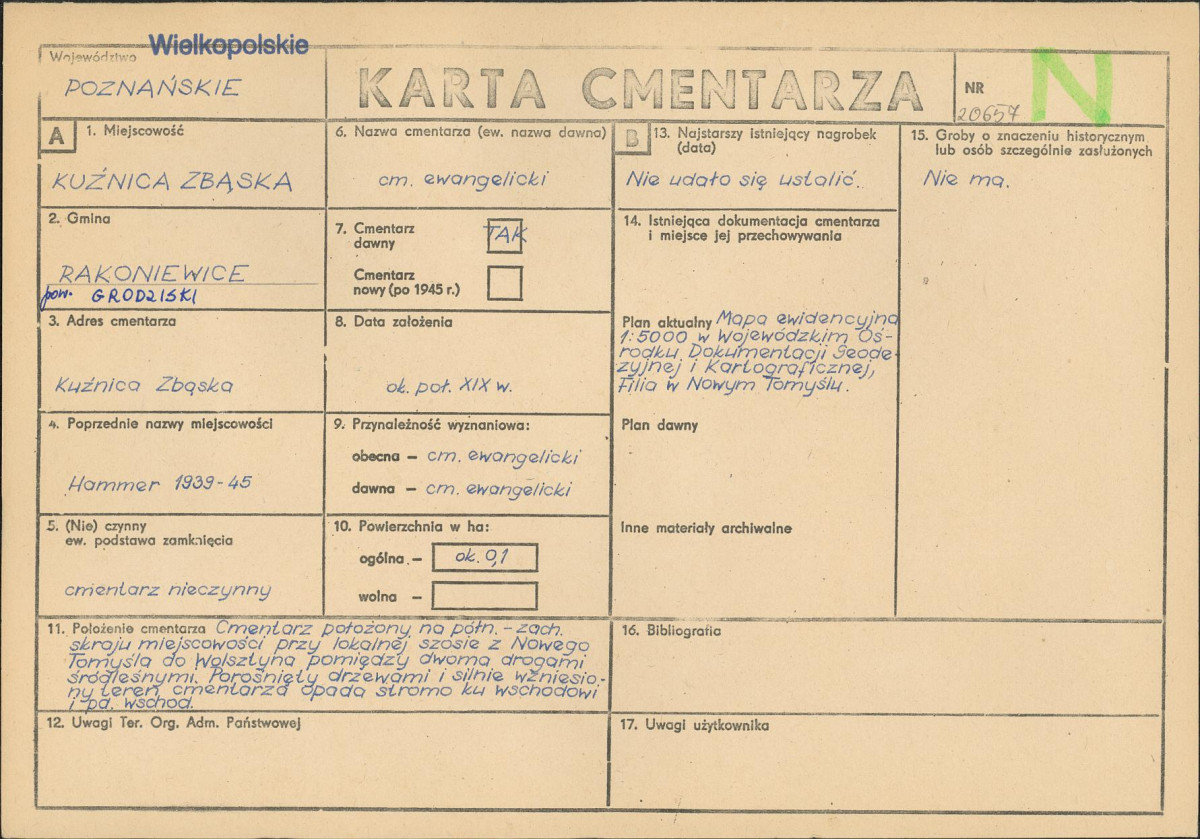 Wielkopolskie
Województwo
POZNAŃSKIE
KARTA CMENTARZA
NR
20657
N
A
1. Miejscowość
KUŹNICA ZBĄSKA
2. Gmina
RAKONIEWICE
pow. GRODZISKI
3. Adres cmentarza
Kuźnica Zbąska
4. Poprzednie nazwy miejscowości
Hammer 1939-45
5. (Nie) czynny
ew. podstawa zamknięcia
cmentarz nieczynny
6. Nazwa cmentarza (ew. nazwa dawna)
cm. ewangelicki
7. Cmentarz
dawny
TAK
Cmentarz
nowy (po 1945 r.)
8. Data założenia
ok. poł. XIX w.
9. Przynależność wyznaniowa:
obecna – cm. ewangelicki
dawna – cm. ewangelicki
10. Powierzchnia w ha:
ogólna – ok. 0,1
wolna –
11. Położenie cmentarza Cmentarz położony na półn.-zach.
skraju miejscowości przy lokalnej szosie z Nowego
Tomyśla do Wolsztyna pomiędzy dwoma drogami
śródleśnymi. Porośnięty drzewami i silnie wzniesio-
ny teren cmentarza opada stromo ku wschodowi
i pd. wschod.
12. Uwagi Ter. Org. Adm. Państwowej
B
13. Najstarszy istniejący nagrobek
(data)
Nie udało się ustalić.
14. Istniejąca dokumentacja cmentarza
i miejsce jej przechowywania
Plan aktualny Mapa ewidencyjna
1:5000 w Wojewódzkim Oś-
rodku Dokumentacji Geode-
zyjnej i Kartograficznej,
Filia w Nowym Tomyślu.
Plan dawny
Inne materiały archiwalne
15. Groby o znaczeniu historycznym
lub osób szczególnie zasłużonych
Nie ma.
16. Bibliografia
17. Uwagi użytkownika